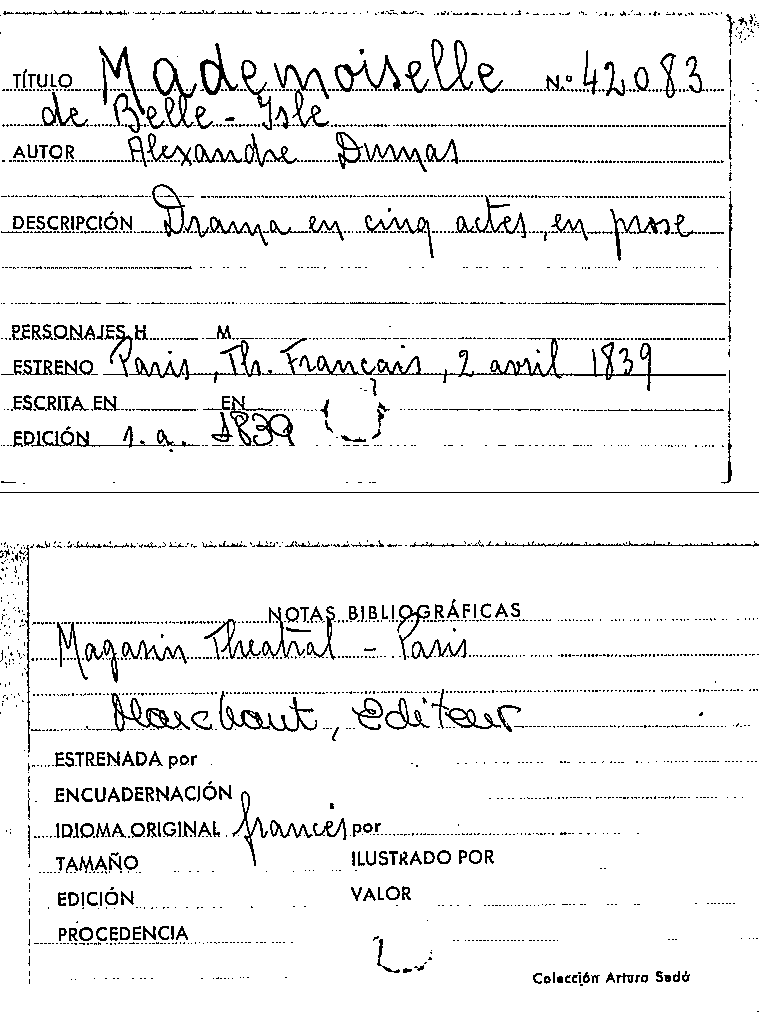 TÍTULO Mademoiselle N.º 42083
de Belle-Isle
AUTOR Alexandre Dumas
DESCRIPCIÓN Drama en cinq actes, en prose
PERSONAJES H M
ESTRENO Paris, Th. Francais, 2 avril 1839
ESCRITA EN EN
EDICIÓN 1. a. 1839
NOTAS BIBLIOGRÁFICAS
Magasin Theatral - Paris
Marchant, Editeur
ESTRENADA por
ENCUADERNACIÓN
IDIOMA ORIGINAL francés por
TAMAÑO ILUSTRADO POR
EDICIÓN VALOR
PROCEDENCIA
Colección Arturo Sedó